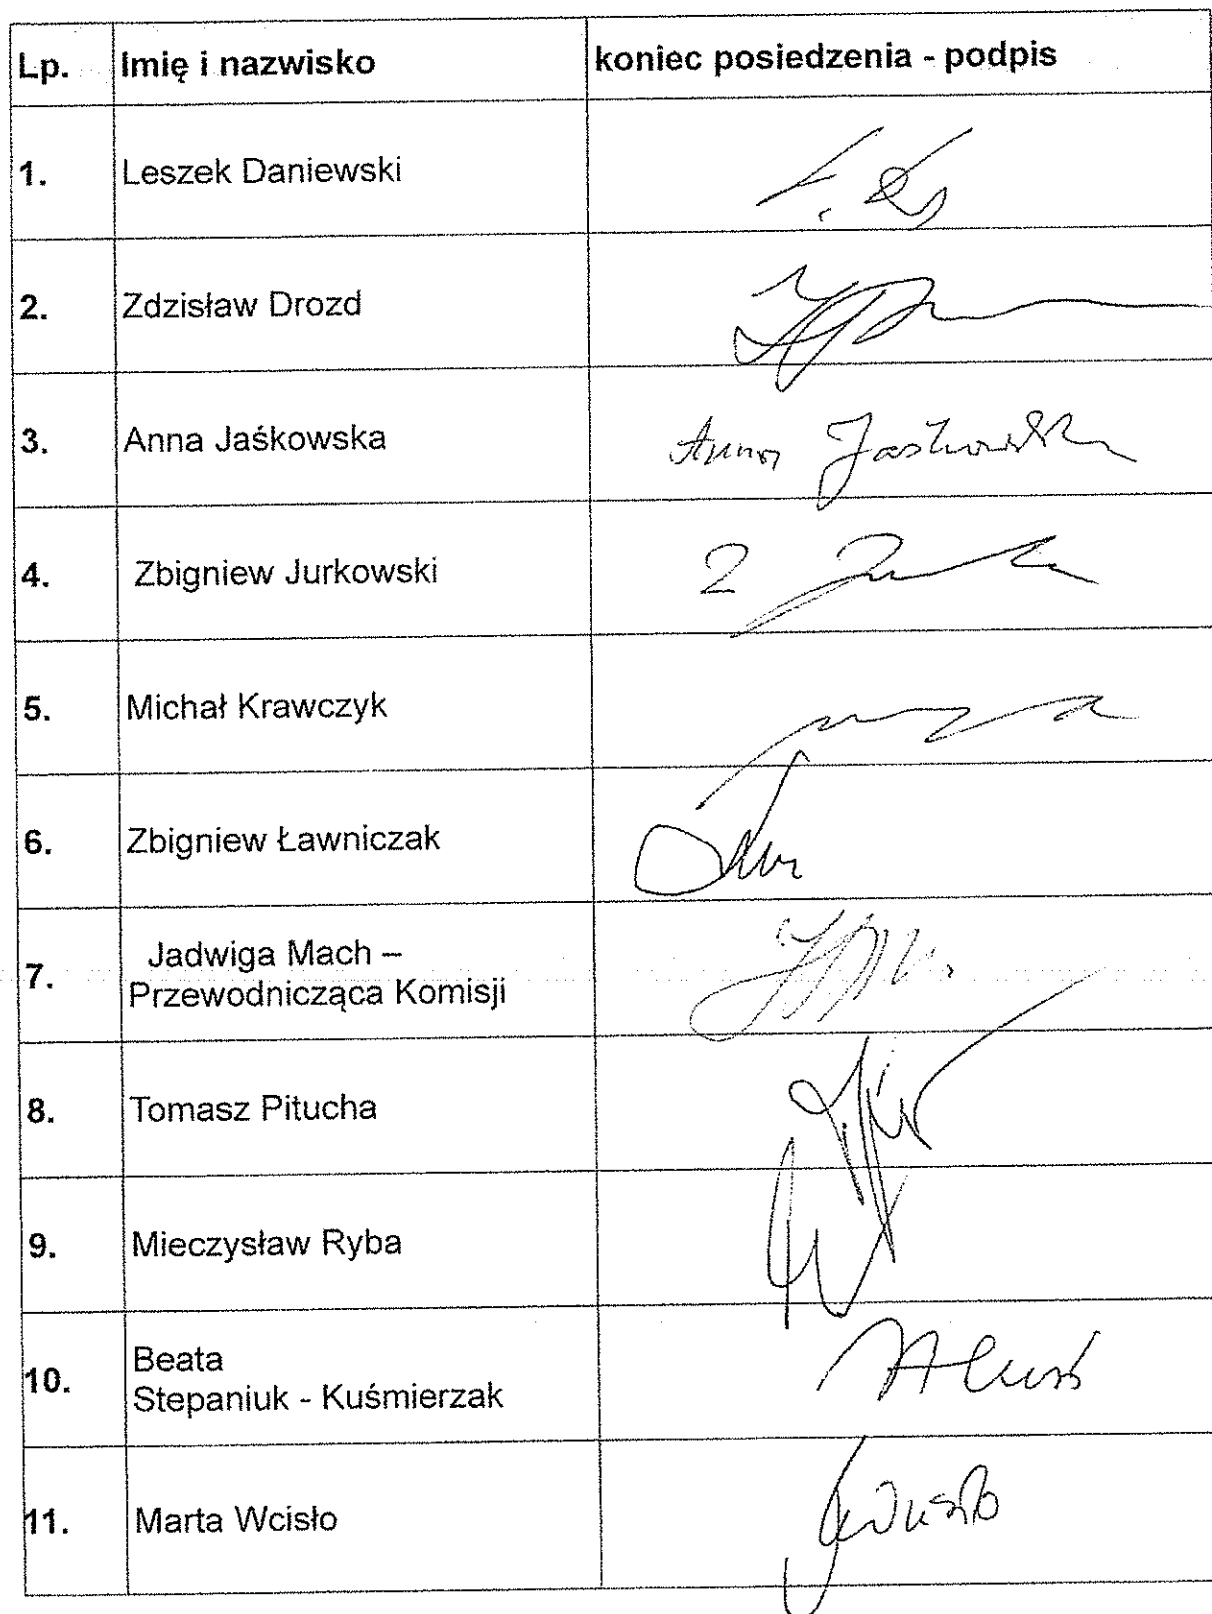 Lp. Imię i nazwisko koniec posiedzenia - podpis
1. Leszek Daniewski
2. Zdzisław Drozd
3. Anna Jaśkowska Anna Jaśkowska
4. Zbigniew Jurkowski
5. Michał Krawczyk
6. Zbigniew Ławniczak
7. Jadwiga Mach –
Przewodnicząca Komisji
8. Tomasz Pitucha
9. Mieczysław Ryba
10. Beata
Stepaniuk - Kuśmierzak
11. Marta Wcisło